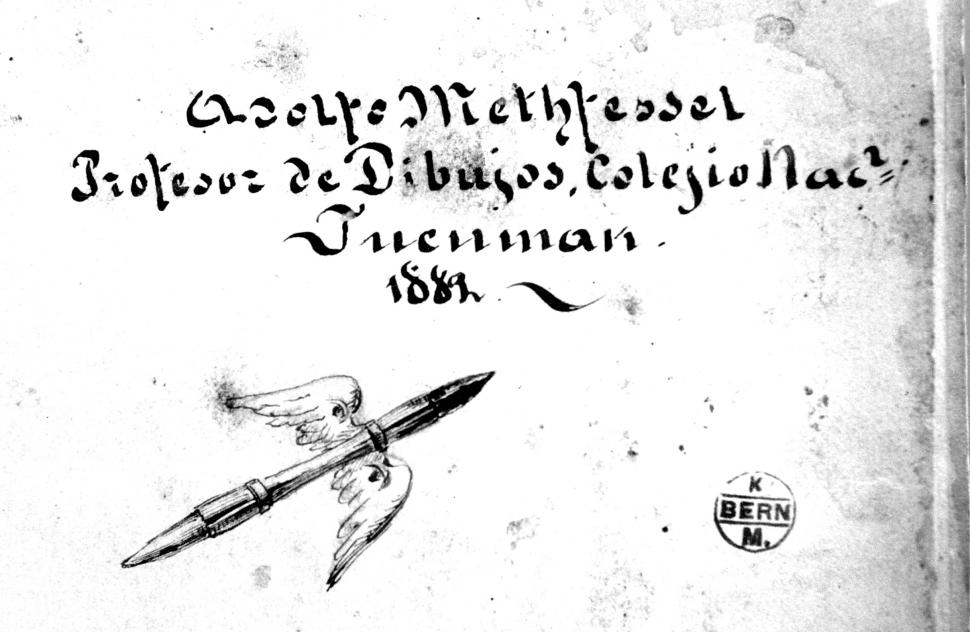 Adolfo Methfessel
Profesor de Dibujos, Colegio Nac.l
Tucuman.
1882
K
BERN
M.